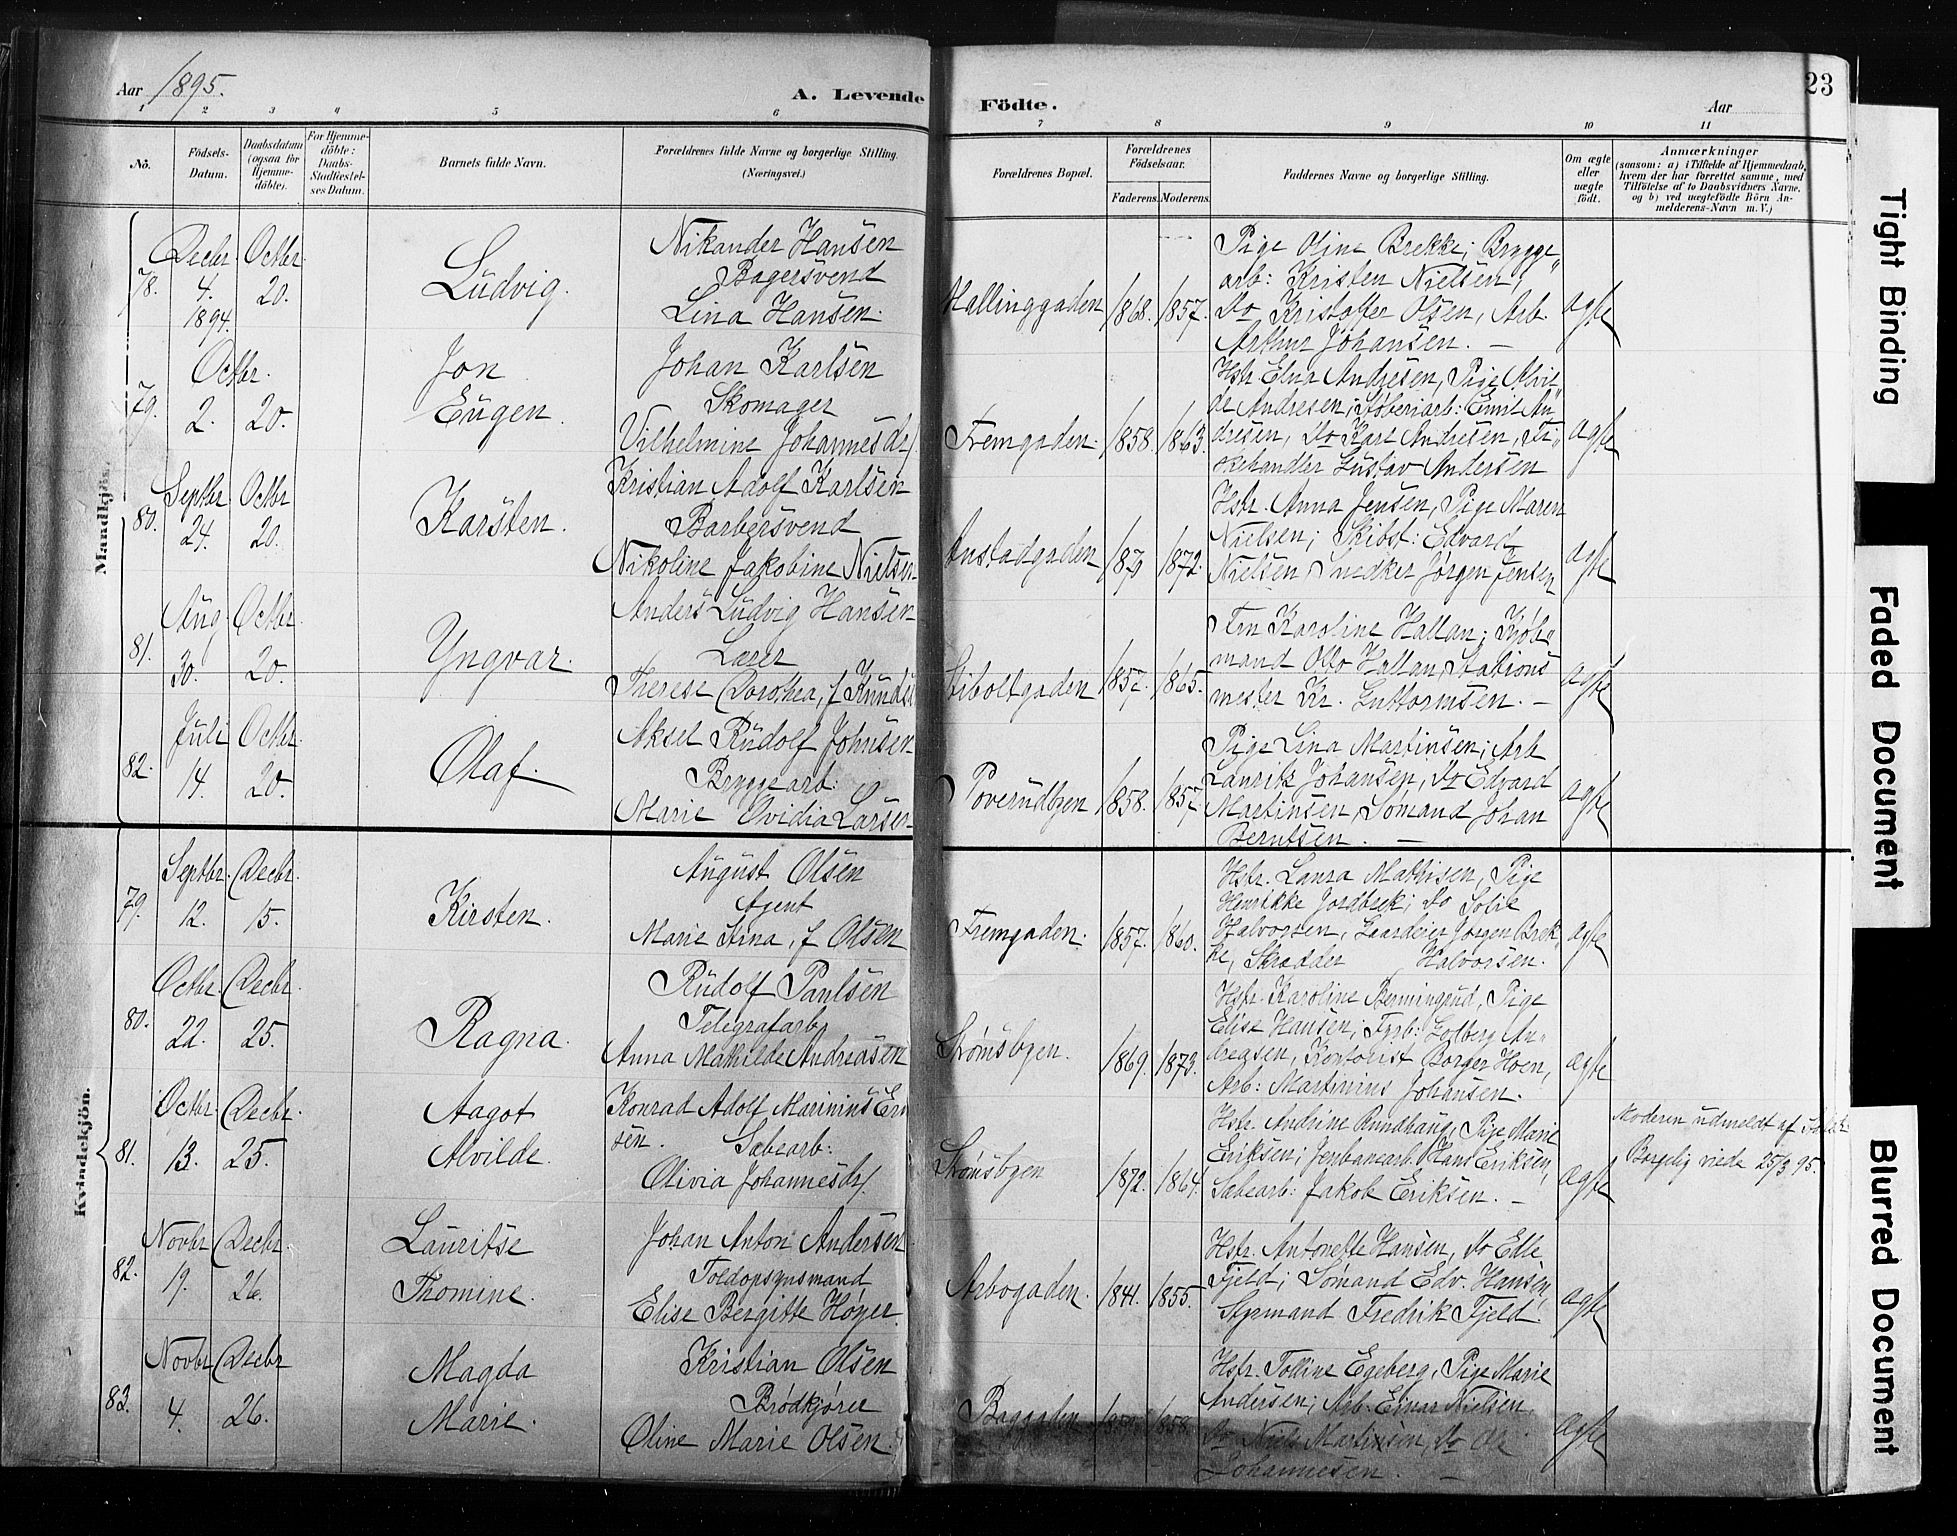 Aar 1895.
A. Levende
Födte.
Aar
23
1
2
3
4
5
6
7
8
9
10
11
No.
Födsels-
Datum.
Daabsdatum
(ogsaa for
Hjemme-
döbte).
For Hjemme-
döbte:
Daabs-
Stadfæstel-
ses Datum.
Barnets fulde Navn.
Forældrenes fulde Navne og borgerlige Stilling.
(Næringsvei.)
Forældrenes Bopæl.
Forældrenes
Födselsaar.
Faderens.
Moderens.
Faddernes Navne og borgerlige Stilling.
Om ægte
eller
uægte
födt.
Anmærkninger
(saasom: a) i Tilfælde af Hjemmedaab,
hvem der har forrettet samme, med
Tilföielse af to Daabsvidners Navne,
og b) ved uægtefödte Börn An-
melderens-Navn m. V.)
Mandkjön.
78.
Decbr
4.
1894.
Octbr
20.
Ludvig.
Nikander Hansen
Bagersvend
Lina Hansen.
Hallinggaden
1868.
1857.
Pige Oline Brekke; Brygge-
arb: Kristen Nielsen,
Do Kristoffer Olsen, Arb.
Arthur Johansen. —
ægte
79.
Octbr.
2.
20.
Jon
Eugen.
Johan Karlsen
Skomager
Vilhelmine Johannesdr
Fremgaden.
1858.
1863.
Hstr. Elna Andresen, Pige Alvil-
de Andresen; Støberiarb: Emil An-
dresen, Do Karl Andresen, Fi-
skehandler Gustav Andersen
ægte
80.
Septbr
24.
Octbr
20.
Karsten.
Kristian Adolf Karlsen
Barbersvend
Nikoline Jakobine Nielsen
Anstadgaden
1872.
Hstr. Anna Jensen, Pige Maren
Nielsen; Skibst: Edvard
Nielsen, Snedker Jørgen Jensen
ægte
81.
Aug
30.
Octbr
20.
Yngvar.
Anders Ludvig Hansen
Lærer
Therese Dorothea, f Knuds
Siboltgaden
1857.
1865.
Fru Karoline Hallan; Kjøb-
mand Otto Hallan, Stations
mester Kr. Guttormsen. —
ægte
82.
Juli
14.
Octbr
20.
Olaf.
Aksel Rudolf Johnsen
Bryggearb:
Marie Ovidia Larsen
1858.
1857.
Pige Lina Martinsen; Arb
Lauritz Johansen, Do Edvard
Martinsen, Sömand Johan
Berntsen. —
ægte
Kvindekjön.
79.
Septbr.
12.
Decbr.
15.
Kirsten.
August Olsen
Agent
Marie Stina, f Olsen
Fremgaden.
1857.
1860.
Hstr. Laura Mathisen, Pige
Henrikke Jordbræk; Do Sofie
Halvorsen, Gaardeier Jørgen Bræk-
ke, Skrædder Halvorsen.
ægte
80.
Octbr.
22.
Decbr.
25.
Ragna.
Rudolf Paulsen
Telegrafarb
Anna Mathilde Andreasen
Strømsbgen.
1869.
1873.
Hstr. Karoline Bermingrud, Pige
Elise Hansen; Fyrb: Golberg An-
dreasen, Kontorist Borger Hoen,
Arb: Martinius Johansen.
ægte
81.
Octbr.
13.
Decbr.
25.
Aagot
Alvilde.
Konrad Adolf Marinius Erik
sen. Sæbearb:
Olivia Johannesdr.
Strømsbgen
1872.
1864.
Hstr. Andrine Rundhaug, Pige Marie
Eriksen; Jenbanearb. Hans Eriksen,
Sæbearb: Jakob Eriksen. —
ægte
Moderen udmeldt af
Borgelig viede 25/3 95.
82.
Novbr
19.
Decbr.
26.
Lauritse
Thomine.
Johan Anton Andersen
Toldopsynsmand
Elise Bergitte Høyer.
Arbogaden.
1841.
1855.
Hstr. Antonette Hansen, Do Edle
Fjeld; Sömand Edv. Hansen,
Styrmand Fredrik Fjeld.
ægte
83.
Novbr
4.
Decbr
26.
Magda
Marie.
Kristian Olsen
Brødkjører
Oline Marie Olsen.
Baggaden
1858.
Hstr. Tolline Egeberg, Pige Marie
Andersen; Arb. Einar Nielsen,
Do Niels Martinsen, Do Ole
Johannesen. —
ægte
Tight Binding
Faded Document
Blurred Document